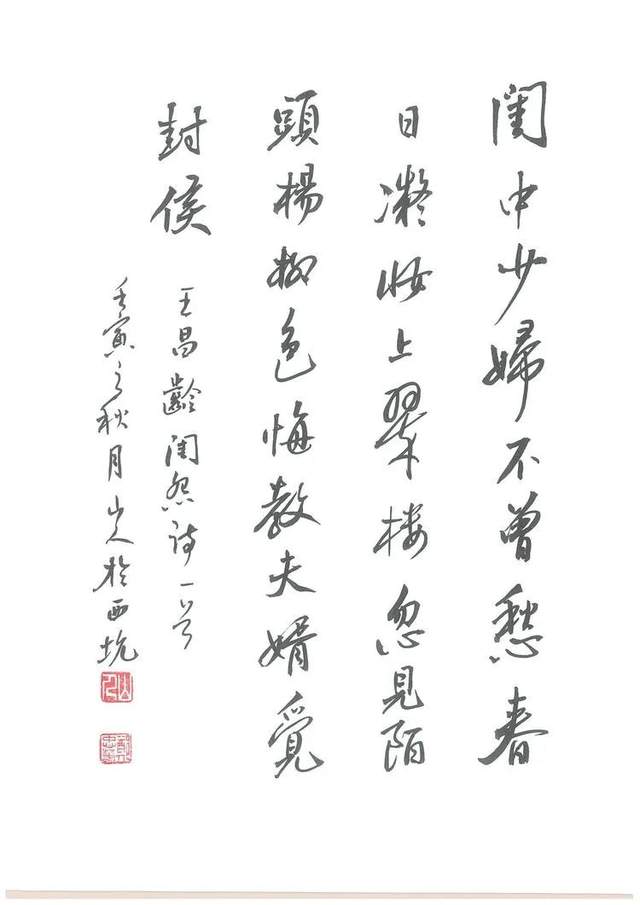 閨中少婦不曾愁春
日凝妝上翠楼忽見陌
頭楊柳色悔教夫婿覓
封侯
王昌齡閨怨诗一首
壬寅之秋月山人於西坑